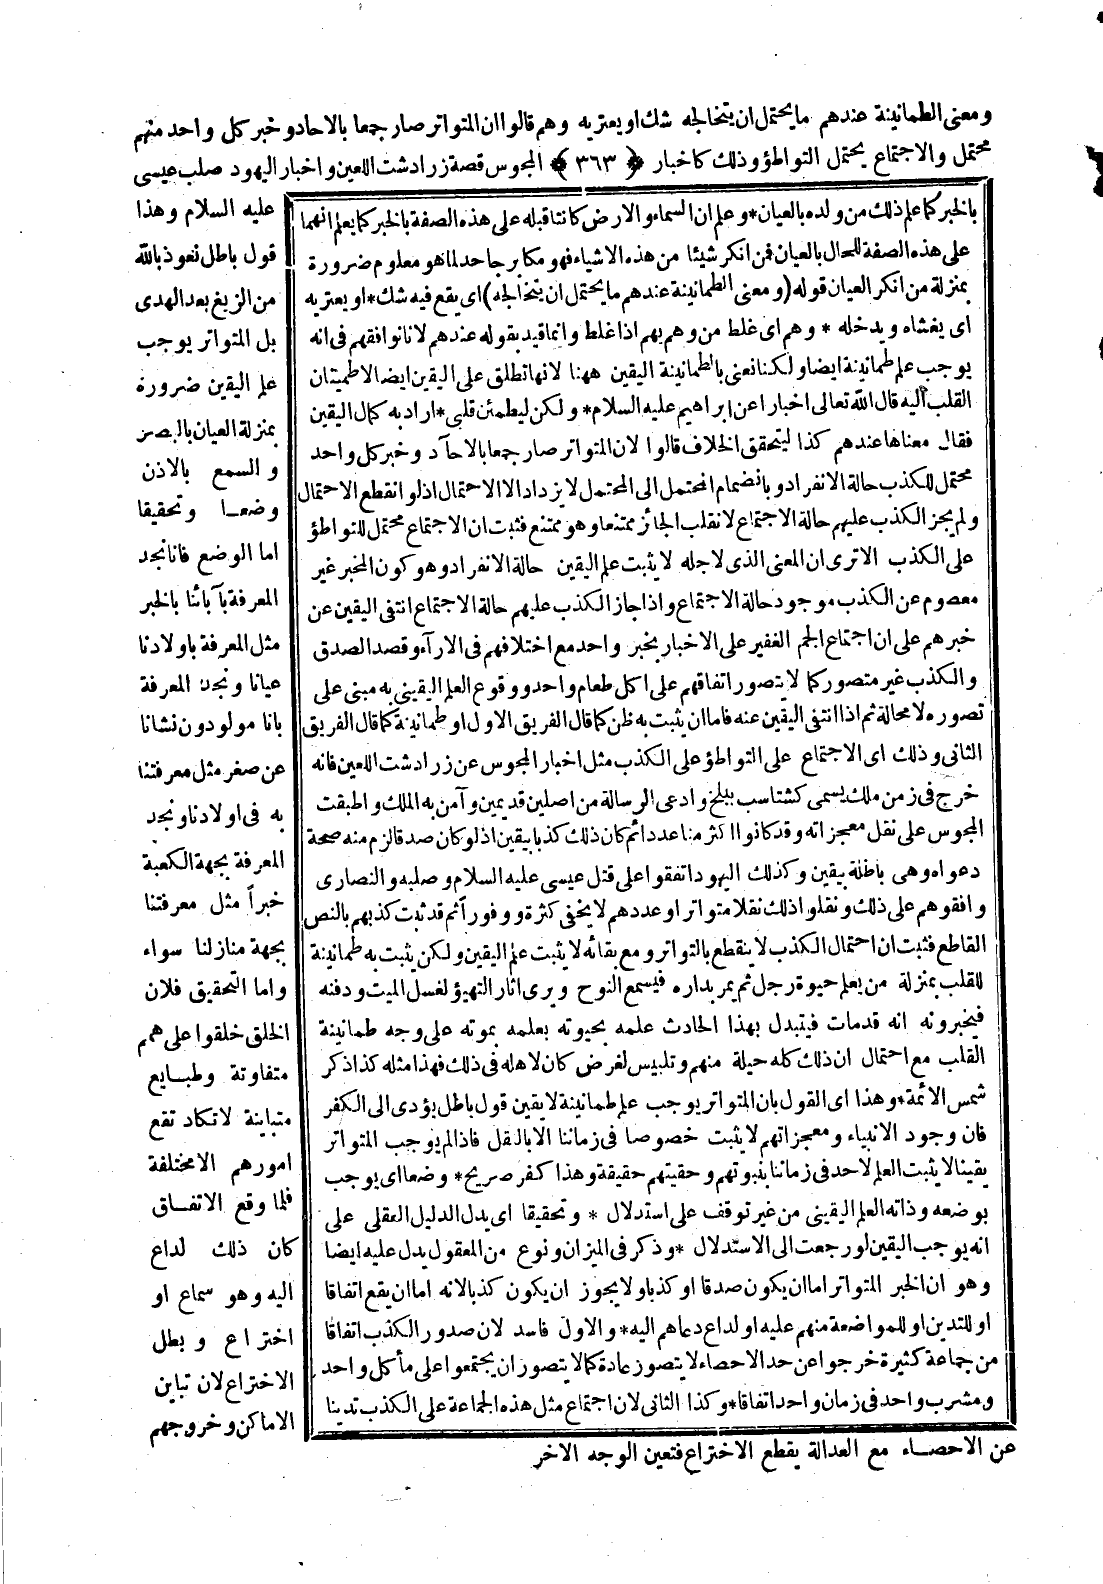 ومعنى الطمانينة عندهم ما يحتمل ان يتخالجه شك او يعتريه وهم قالوا ان المتواتر صار جمعا بالاحاد وخبر كل واحد منهم
محتمل والاجتماع يحتمل التواطؤ وذلك كاخبار ﴿ ٣٦٣ ﴾ المجوس قصة زرادشت اللعين واخبار اليهود صلب عيسى
عليه السلام وهذا
قول باطل نعوذ بالله
من الزيغ بعد الهدى
بل المتواتر يوجب
علم اليقين ضرورة
بمنزلة العيان بالبصر
والسمع بالاذن
وضعا وتحقيقا
اما الوضع فانا نجد
المعرفة بآبائنا بالخبر
مثل المعرفة باولادنا
عيانا ونجد المعرفة
بانا مولودون نشانا
عن صغر مثل معرفتنا
به فى اولادنا ونجد
المعرفة بجهة الكعبة
خبرا مثل معرفتنا
بجهة منازلنا سواء
واما التحقيق فلان
الخلق خلقوا على همم
متفاوتة وطبايع
متباينة لا تكاد تقع
امورهم الا مختلفة
فلما وقع الاتفاق
كان ذلك لداع
اليه وهو سماع او
اختراع وبطل
الاختراع لان تباين
الاماكن وخروجهم
عن الاحصاء مع العدالة يقطع الاختراع فتعين الوجه الاخر
بالخبر كما علم ذلك من ولده بالعيان * وعلم ان السماء والارض كانتا قبله على هذه الصفة بالخبر كما يعلم انهما
على هذه الصفة للحال بالعيان فمن انكر شيئا من هذه الاشياء فهو مكابر جاحد لما هو معلوم ضرورة
بمنزلة من انكر العيان قوله (ومعنى الطمانينة عندهم ما يحتمل ان يتخالجه) اى يقع فيه شك * او يعتريه
اى يغشاه ويدخله * وهم اى غلط من وهم يهم اذا غلط وانما قيد بقوله عندهم لانا نوافقهم فى انه
يوجب علم طمانينة ايضا ولكنا نعنى بالطمانينة اليقين ههنا لانها تطلق على اليقين ايضا لاطمينان
القلب اليه قال الله تعالى اخبارا عن ابراهيم عليه السلام * ولكن ليطمئن قلبى * اراد به كمال اليقين
فقال معناها عندهم كذا ليتحقق الخلاف قالوا لان المتواتر صار جمعا بالآحاد وخبر كل واحد
محتمل للكذب حالة الانفراد وبانضمام المحتمل الى المحتمل لا يزداد الا الاحتمال اذ لو انقطع الاحتمال
ولم يجز الكذب عليهم حالة الاجتماع لانقلب الجائز ممتنعا وهو ممتنع فثبت ان الاجتماع محتمل للتواطؤ
على الكذب الا ترى ان المعنى الذى لاجله لا يثبت علم اليقين حالة الانفراد وهو كون المخبر غير
معصوم عن الكذب موجود حالة الاجتماع واذا جاز الكذب عليهم حالة الاجتماع انتفى اليقين عن
خبرهم على ان اجتماع الجم الغفير على الاخبار بخبر واحد مع اختلافهم فى الارآء وقصد الصدق
والكذب غير متصور كما لا يتصور اتفاقهم على اكل طعام واحد ووقوع العلم اليقينى به مبنى على
تصوره لا محالة ثم اذا انتفى اليقين عنه فاما ان يثبت به ظن كما قال الفريق الاول او طمانينة كما قال الفريق
الثانى وذلك اى الاجتماع على التواطؤ على الكذب مثل اخبار المجوس عن زرادشت اللعين فانه
خرج فى زمن ملك يسمى كشتاسب ببلخ وادعى الرسالة من اصلين قديمين وآمن به الملك واطبقت
المجوس على نقل معجزاته وقد كانوا اكثر منا عددا ثم كان ذلك كذبا بيقين اذ لو كان صدقا لزم منه صحة
دعواه وهى باطلة بيقين وكذلك اليهود اتفقوا على قتل عيسى عليه السلام وصلبه والنصارى
وافقوهم على ذلك ونقلوا ذلك نقلا متواترا وعددهم لا يخفى كثرة ووفورا ثم قد ثبت كذبهم بالنص
القاطع فثبت ان احتمال الكذب لا ينقطع بالتواتر ومع بقائه لا يثبت علم اليقين ولكن يثبت به طمانينة
للقلب بمنزلة من يعلم حيوة رجل ثم يمر بداره فيسمع النوح ويرى اثار التهيؤ لغسل الميت ودفنه
فيخبرونه انه قد مات فيتبدل بهذا الحادث علمه بحيوته بعلمه بموته على وجه طمانينة
القلب مع احتمال ان ذلك كله حيلة منهم وتلبيس لغرض كان لاهله فى ذلك فهذا مثله كذا ذكر
شمس الائمة * وهذا اى القول بان المتواتر يوجب علم طمانينة لا يقين قول باطل يؤدى الى الكفر
فان وجود الانبياء ومعجزاتهم لا يثبت خصوصا فى زماننا الا بالنقل فاذا لم يوجب المتواتر
يقينا لا يثبت العلم لاحد فى زماننا بنبوتهم وحقيتهم حقيقة وهذا كفر صريح * وضعا اى يوجب
بوضعه وذاته العلم اليقينى من غير توقف على استدلال * وتحقيقا اى يدل الدليل العقلى على
انه يوجب اليقين لو رجعت الى الاستدلال * وذكر فى الميزان ونوع من المعقول يدل عليه ايضا
وهو ان الخبر المتواتر اما ان يكون صدقا او كذبا ولا يجوز ان يكون كذبا لانه اما ان يقع اتفاقا
او للتدين او للمواضعة منهم عليه او لداع دعاهم اليه * والاول فاسد لان صدور الكذب اتفاقا
من جماعة كثيرة خرجوا عن حد الاحصاء لا يتصور عادة كما لا يتصور ان يجتمعوا على مأكل واحد
ومشرب واحد فى زمان واحد اتفاقا * وكذا الثانى لان اجتماع مثل هذه الجماعة على الكذب تدينا